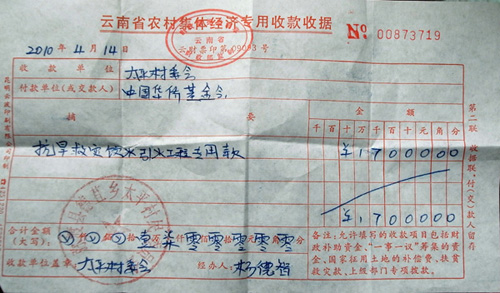 云南省农村集体经济专用收款收据
云南省
No 00873719
2010 年 4 月 14 日
收款单位 太平村委会
付款单位(成交款人) 中国华侨基金会
摘要 金额
千百十万千百十元角分
抗旱救灾饮水引水工程专用款 ¥1700000
¥1700000
合计金额(大写): 仟 佰 拾 壹 万 柒 仟 零 佰 零 拾 零 元 零 角 零 分
收款单位盖章 太平村委会 经办人: 杨德智
备注:允许填写的收款项目包括财政补助资金、“一事一议”筹集的资金、国家征用土地的补偿费、扶贫救灾款、上级部门专项拨款。
第二联 收据联,付(交)款人留存